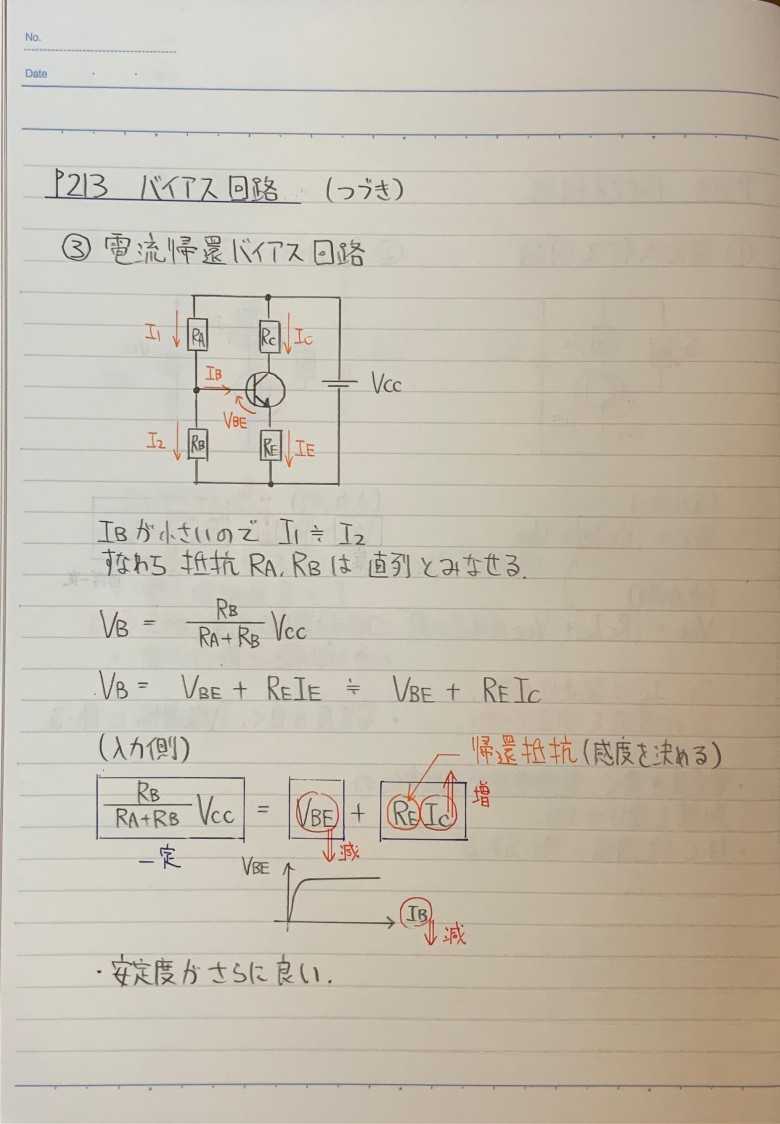 No.
Date
P213 バイアス回路 (つづき)
③ 電流帰還バイアス回路
I1 RA RC IC
IB
VCC
VBE
I2 RB RE IE
IBが小さいので I1 ≒ I2
すなわち 抵抗 RA, RBは 直列とみなせる.
VB = RB / (RA+RB) VCC
VB = VBE + REIE ≒ VBE + REIC
(入力側) 帰還抵抗(感度を決める)
RB / (RA+RB) VCC = VBE + REIC 増
一定 減
VBE
IB
減
・安定度がさらに良い.